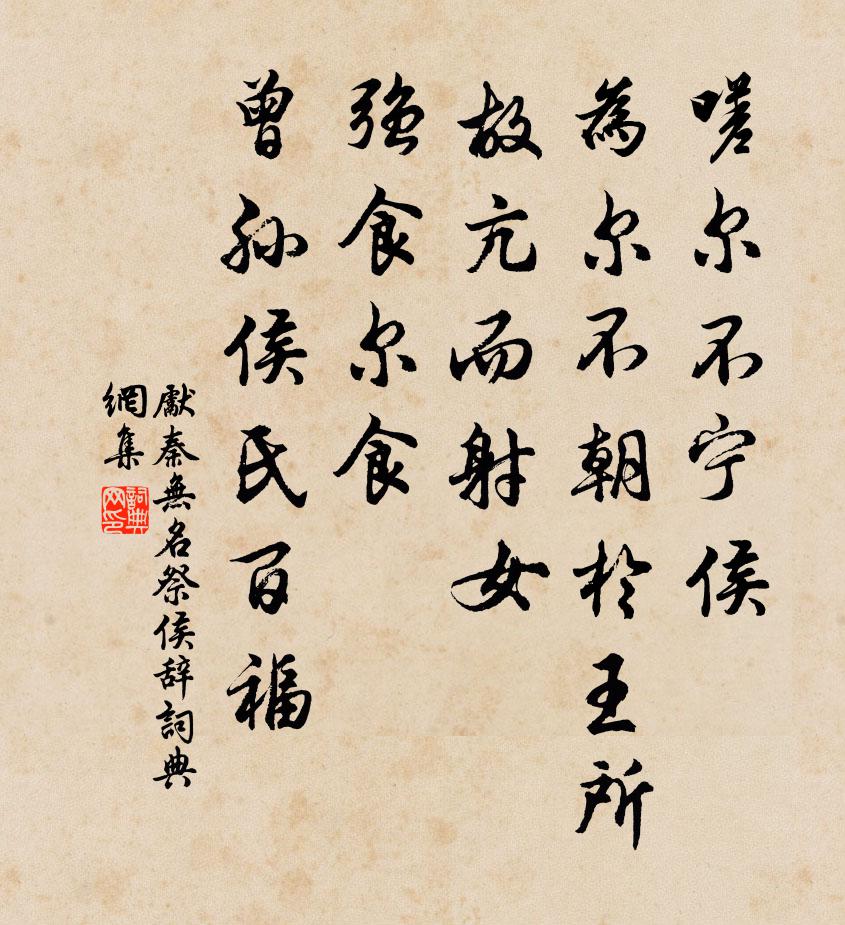 嗟尔不宁侯
為尔不朝於王所
故亢而射女
强食尔食
曾孙侯氏百福
獻秦無名祭侯辞詞典
網集
詞典
网印